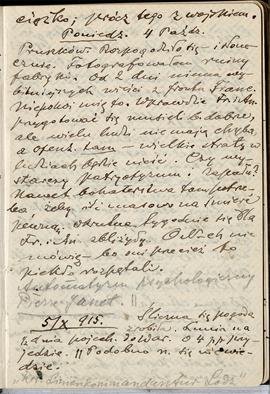 ciężko, prócz tego z wojskiem.
Poniedz. 4 Paźdz.
Pruszków. Rozpogodziło się i słone-
czne. Fotografowałem ruiny
fabryki. Od 2 dni niema wy-
bitniejszych wieści z frontu franc.
Niepokoi mię to. Wprawdzie Fr. i An.
przygotować się musieli dobrze,
ale wielu ludzi nie mają chyba,
a ofens. tam – wielkie straty w
ludziach będzie nieść. Czy wy-
starczy patryotyzmu i zapału?
Nawet bohaterstwa tam potrze-
ba, żeby iść masowo na śmierć
pewną. Okrutne tygodnie się dla
Fr. i An. zbliżyły. O tych nie
mówię – bo oni przecież to
piekło rozpętali.
Automatyzm psychologiczny
Pierre Janet
5/X 915. Śliczna się pogoda
zrobiła.
dnia pojech. do War. O 4 p.p. przy-
jedzie. || Podobno n. się
dzie.
"Kreislinienkommandantur Lodz"